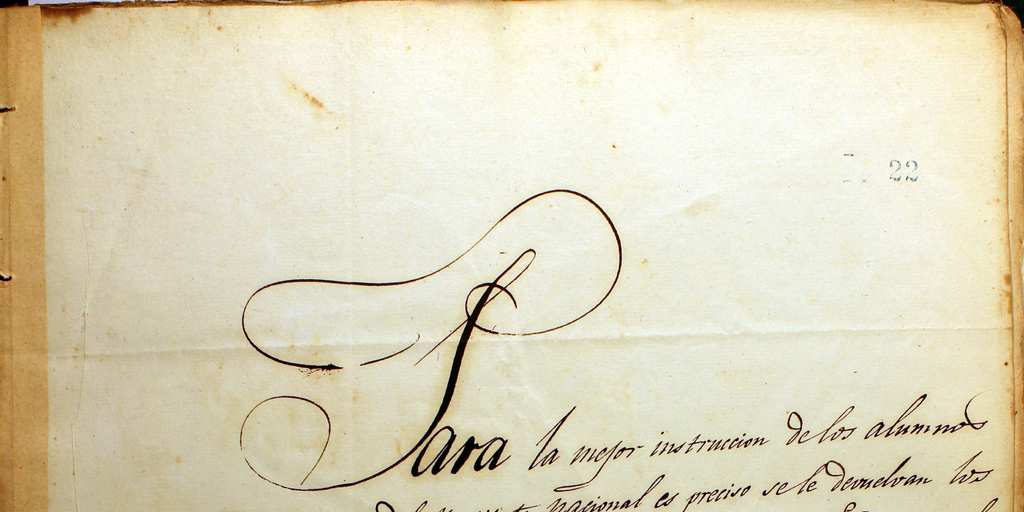 22
Para la mejor instruccion de los alumnos
nacional es preciso se le devuelvan los